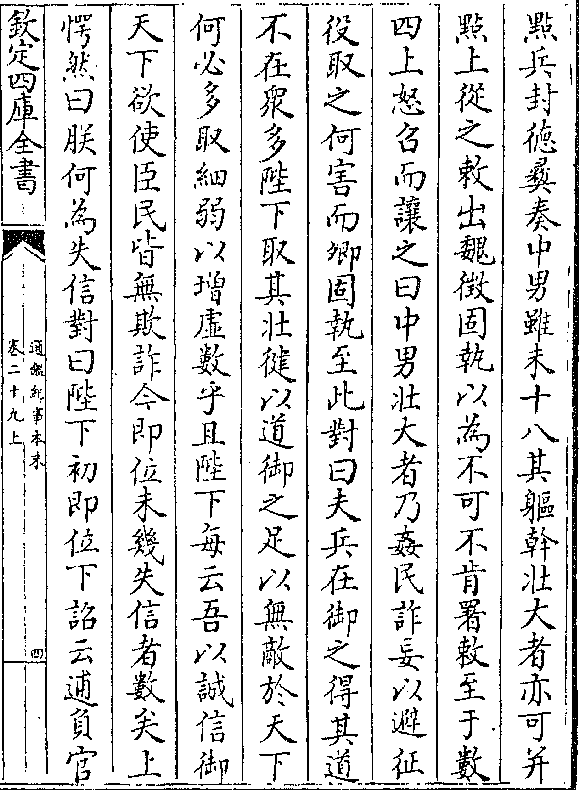 點兵封徳彝奏中男雖未十八其軀幹壯大者亦可并
點上從之敕出魏徵固執以為不可不肯署敕至于數
四上怒召而讓之曰中男壯大者乃姦民詐妄以避征
役取之何害而卿固執至此對曰夫兵在御之得其道
不在衆多陛下取其壯健以道御之足以無敵於天下
何必多取細弱以增虛數乎且陛下毎云吾以誠信御
天下欲使臣民皆無欺詐今即位未幾失信者數矣上
愕然曰朕何為失信對曰陛下初即位下詔云逋負官
欽定四庫全書
通鑑紀事本末
卷二十九上
四